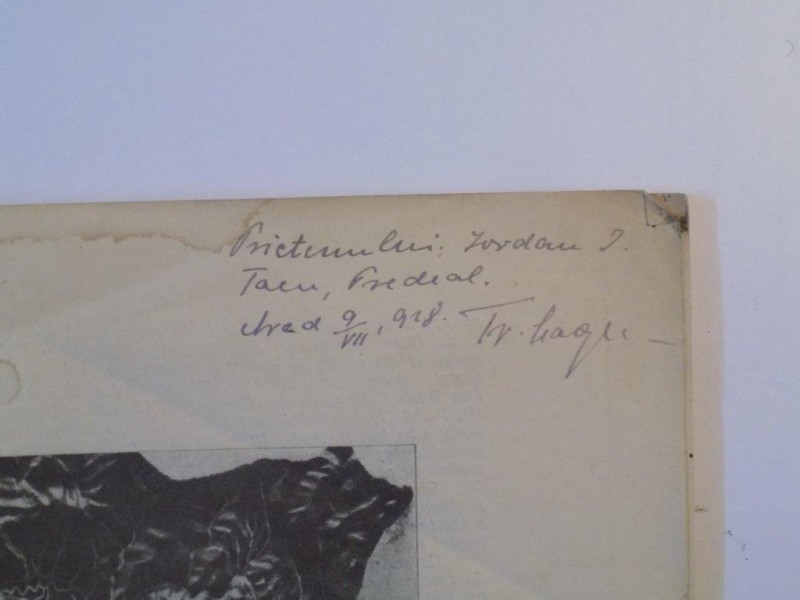 Prietenului: Iordan I.
Tacu, Predeal.
Arad 9/VII, 928. Tr.